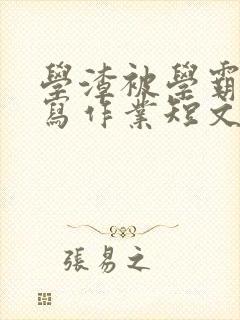 學渣被學霸
寫作業短文
張易之